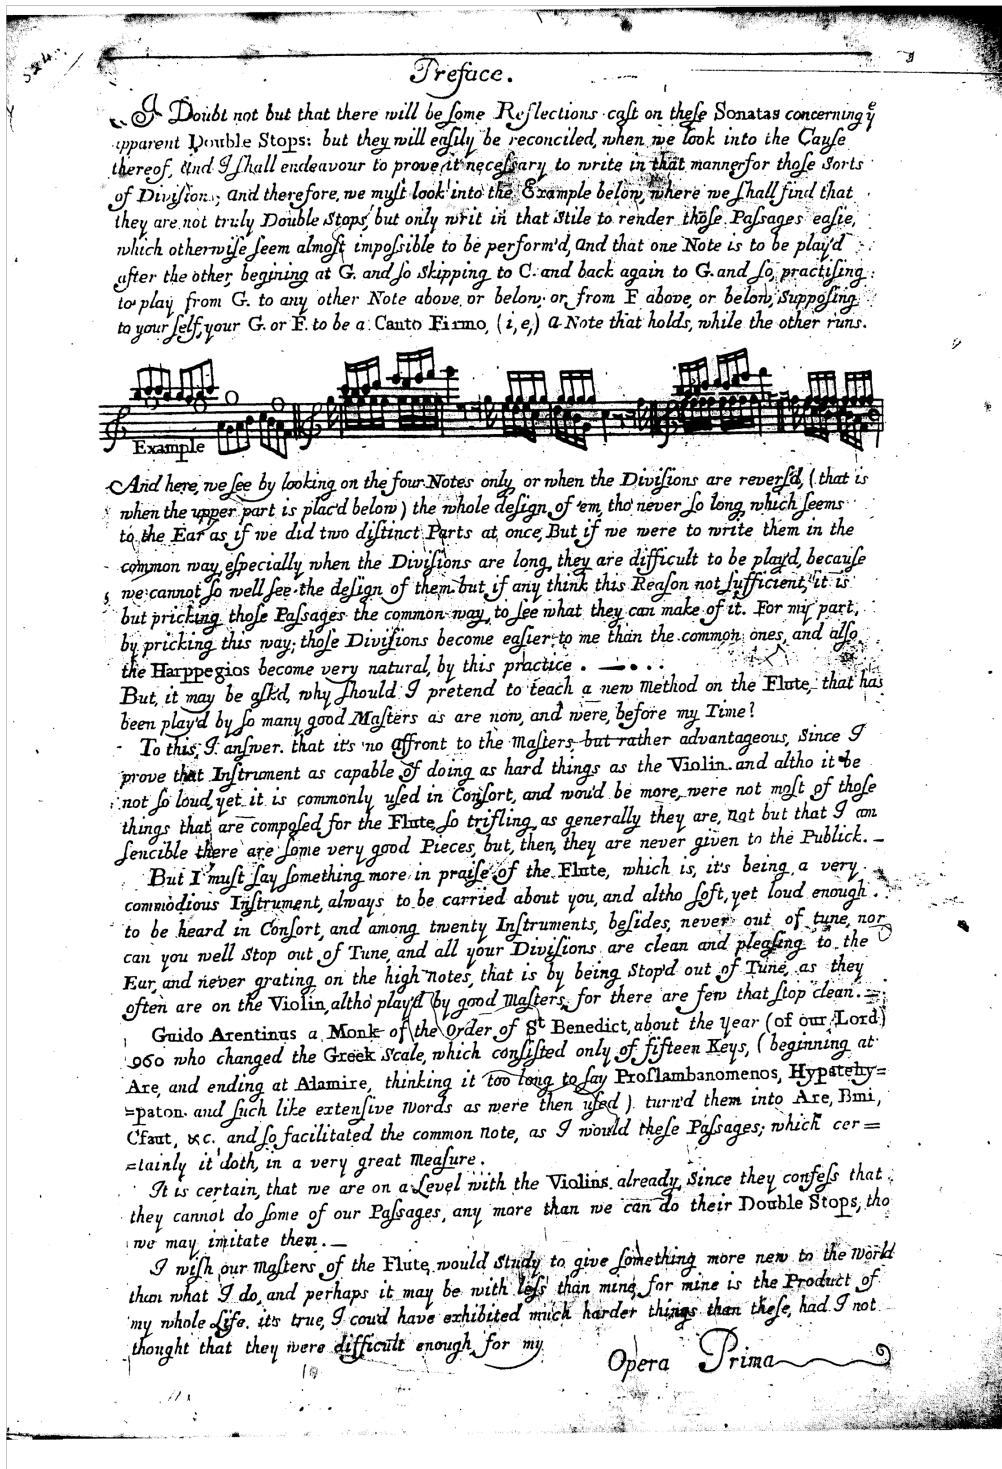 Preface.
I Doubt not but that there will be ſome Reflections caſt on theſe Sonatas concerning yᵉ
apparent Double Stops: but they will eaſily be reconciled, when we look into the Cauſe
thereof, And I ſhall endeavour to prove it neceſsary to write in that manner for thoſe Sorts
of Diviſions; and therefore, we muſt look into the Example below, where we ſhall find that
they are not truly Double Stops, but only writ in that Stile to render thoſe Paſsages eaſie,
which otherwiſe ſeem almoſt impoſsible to be perform'd, and that one Note is to be play'd
after the other, begining at G. and ſo Skipping to C. and back again to G. and ſo, practiſing
to play from G. to any other Note above or below; or from F above, or below, Suppoſing
to your ſelf, your G. or F. to be a Canto Firmo, (i, e,) a Note that holds, while the other runs.
Example
And here, we ſee by looking on the four Notes only, or when the Diviſions are reverſd, (that is
when the upper part is plac'd below) the whole deſign of 'em, tho' never ſo long, which ſeems
to the Ear as if we did two diſtinct Parts at once, But if we were to write them in the
common way, eſpecially when the Diviſions are long, they are difficult to be play'd, becauſe
we cannot ſo well ſee the deſign of them but if any think this Reaſon not ſufficient, it is
but pricking thoſe Paſsages the common way, to ſee what they can make of it. For my part,
by pricking this way; thoſe Diviſions become eaſier to me than the common ones, and alſo
the Harppegios become very natural, by this practice.
But, it may be aſk'd, why ſhould I pretend to teach a new Method on the Flute, that has
been play'd by ſo many good Maſters as are now, and were, before my Time?
To this, I anſwer. that it's no affront to the Maſters, but rather advantageous, Since I
prove that Inſtrument as capable of doing as hard things as the Violin. and altho it be
not ſo loud, yet it is commonly uſed in Conſort, and wou'd be more, were not moſt of thoſe
things that are compoſed for the Flute, ſo trifling, as generally they are, not but that I am
ſencible there are ſome very good Pieces, but, then, they are never given to the Publick. _
But I muſt ſay ſomething more in praiſe of the Flute, which is, it's being a very
commodious Inſtrument, always to be carried about you, and altho ſoft, yet loud enough
to be heard in Conſort, and among twenty Inſtruments, beſides, never out of tune, nor
can you well Stop out of Tune, and all your Diviſions are clean and pleaſing to the
Ear, and never grating on the high Notes, that is by being Stop'd out of Tune, as they
often are on the Violin, altho' play'd by good Maſters, for there are few that ſtop clean. =
Guido Arentinus a Monk of the Order of Sᵗ Benedict, about the Year (of our Lord)
960 who changed the Greek Scale, which conſiſted only of fifteen Keys, (beginning at
Are, and ending at Alamire, thinking it too long to ſay Proslambanomenos, Hypatehy=
=paton. and ſuch like extenſive Words as were then uſed) turn'd them into Are, Bmi,
Cfaut, &c. and ſo facilitated the common Note, as I would theſe Paſsages; which cer=
=tainly it doth, in a very great Meaſure.
It is certain, that we are on a Level with the Violins already, Since they confeſs that
they cannot do ſome of our Paſsages, any more than we can do their Double Stops, tho
we may imitate them. _
I wiſh our Maſters of the Flute would Study to give ſomething more new to the World
than what I do, and perhaps it may be with leſs than mine, for mine is the Product of
my whole Life. it's true, I cou'd have exhibited much harder things than theſe, had I not
thought that they were difficult enough for my
Opera Prima